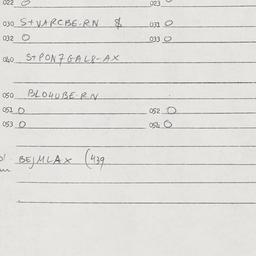 022 O 023 O
030 S+VARCBE-RN $ 031 O
032 O 033 O
040 S+PON7GAL8-AX
050 BLO4UBE-RN
051 O 052 O
053 O 054 O
BEJMLAX (439